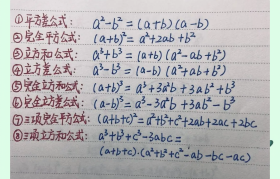 ①平方差公式: a²-b² = (a+b)(a-b)
②完全平方公式: (a+b)² = a²+2ab+b²
③立方和公式: a³+b³ = (a+b)(a²-ab+b²)
④立方差公式: a³-b³ = (a-b)(a²+ab+b²)
⑤完全立方和公式: (a+b)³ = a³+3a²b+3ab²+b³
⑥完全立方差公式: (a-b)³ = a³-3a²b+3ab²-b³
⑦三项完全平方公式: (a+b+c)² = a²+b²+c²+2ab+2ac+2bc
⑧三项立方和公式: a³+b³+c³-3abc =
(a+b+c)·(a²+b²+c²-ab-bc-ac)